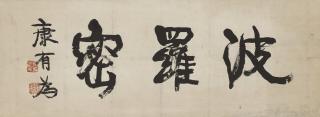 波羅密
康有為